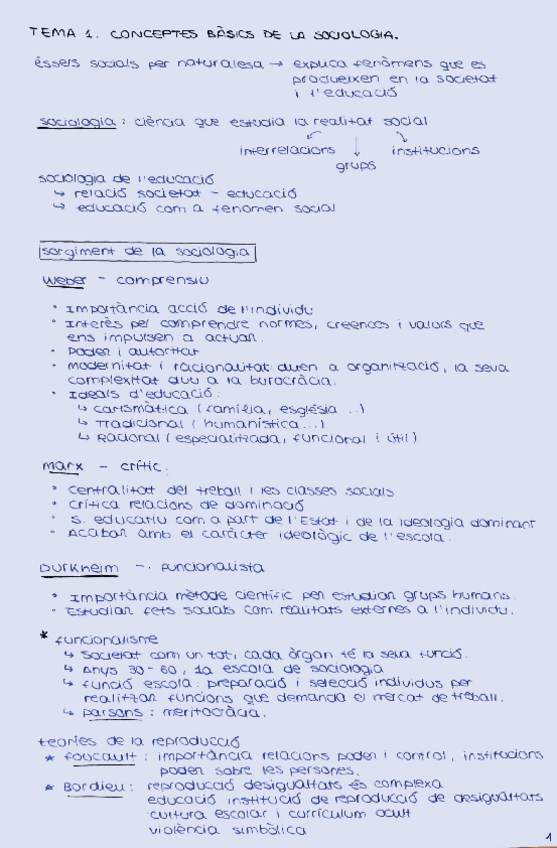 TEMA 1. CONCEPTES BÀSICS DE LA SOCIOLOGIA.
éssers socials per naturalesa → explica fenòmens que es
produeixen en la societat
i l'educació
sociologia: ciència que estudia la realitat social
interrelacions
grups
institucions
sociologia de l'educació
↳ relació societat - educació
↳ educació com a fenomen social
sorgiment de la sociologia
Weber - comprensiu
· Importància acció de l'individu
· Interès per comprendre normes, creences i valors que
ens impulsen a actuar.
· Poder i autoritat
· Modernitat i racionalitat duen a organització, la seva
complexitat duu a la burocràcia.
· Ideals d'educació:
↳ Carismàtica (família, església ...)
↳ Tradicional (humanística...)
↳ Racional (especialitzada, funcional i útil)
Marx - crític.
· Centralitat del treball i les classes socials
· Crítica relacions de dominació
· S. educatiu com a part de l'Estat i de la ideologia dominant
· Acabar amb el caràcter ideològic de l'escola.
Durkheim - funcionalista
· Importància mètode científic per estudiar grups humans.
· Estudiar fets socials com realitats externes a l'individu.
* funcionalisme
↳ Societat com un tot, cada òrgan té la seva funció.
↳ Anys 30-60, 1a escola de sociologia
↳ funció escola: preparació i selecció individus per
realitzar funcions que demanda el mercat de treball.
↳ Parsons: meritocràcia.
teories de la reproducció
* Foucault: importància relacions poder i control, institucions
poder sobre les persones.
* Bordieu: reproducció desigualtats és complexa
educació institució de reproducció de desigualtats
cultura escolar i currículum ocult
violència simbòlica
1